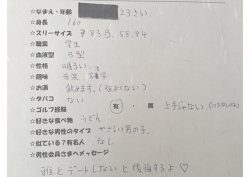 ☆なまえ・年齢 23さい
☆身長 160
☆スリーサイズ 83 58.84
☆職業 学生
☆血液型 B型
☆性格 明るい
☆趣味 音楽
☆お酒 飲めます。
☆タバコ ない
☆ゴルフ経験 有・無 上手じゃない
☆好きな食べ物 うどん
☆好きな男性のタイプ やさしい男の子
☆似ている?有名人 なし
☆男性会員さまへメッセージ
私とデートしないと後悔するよ♡